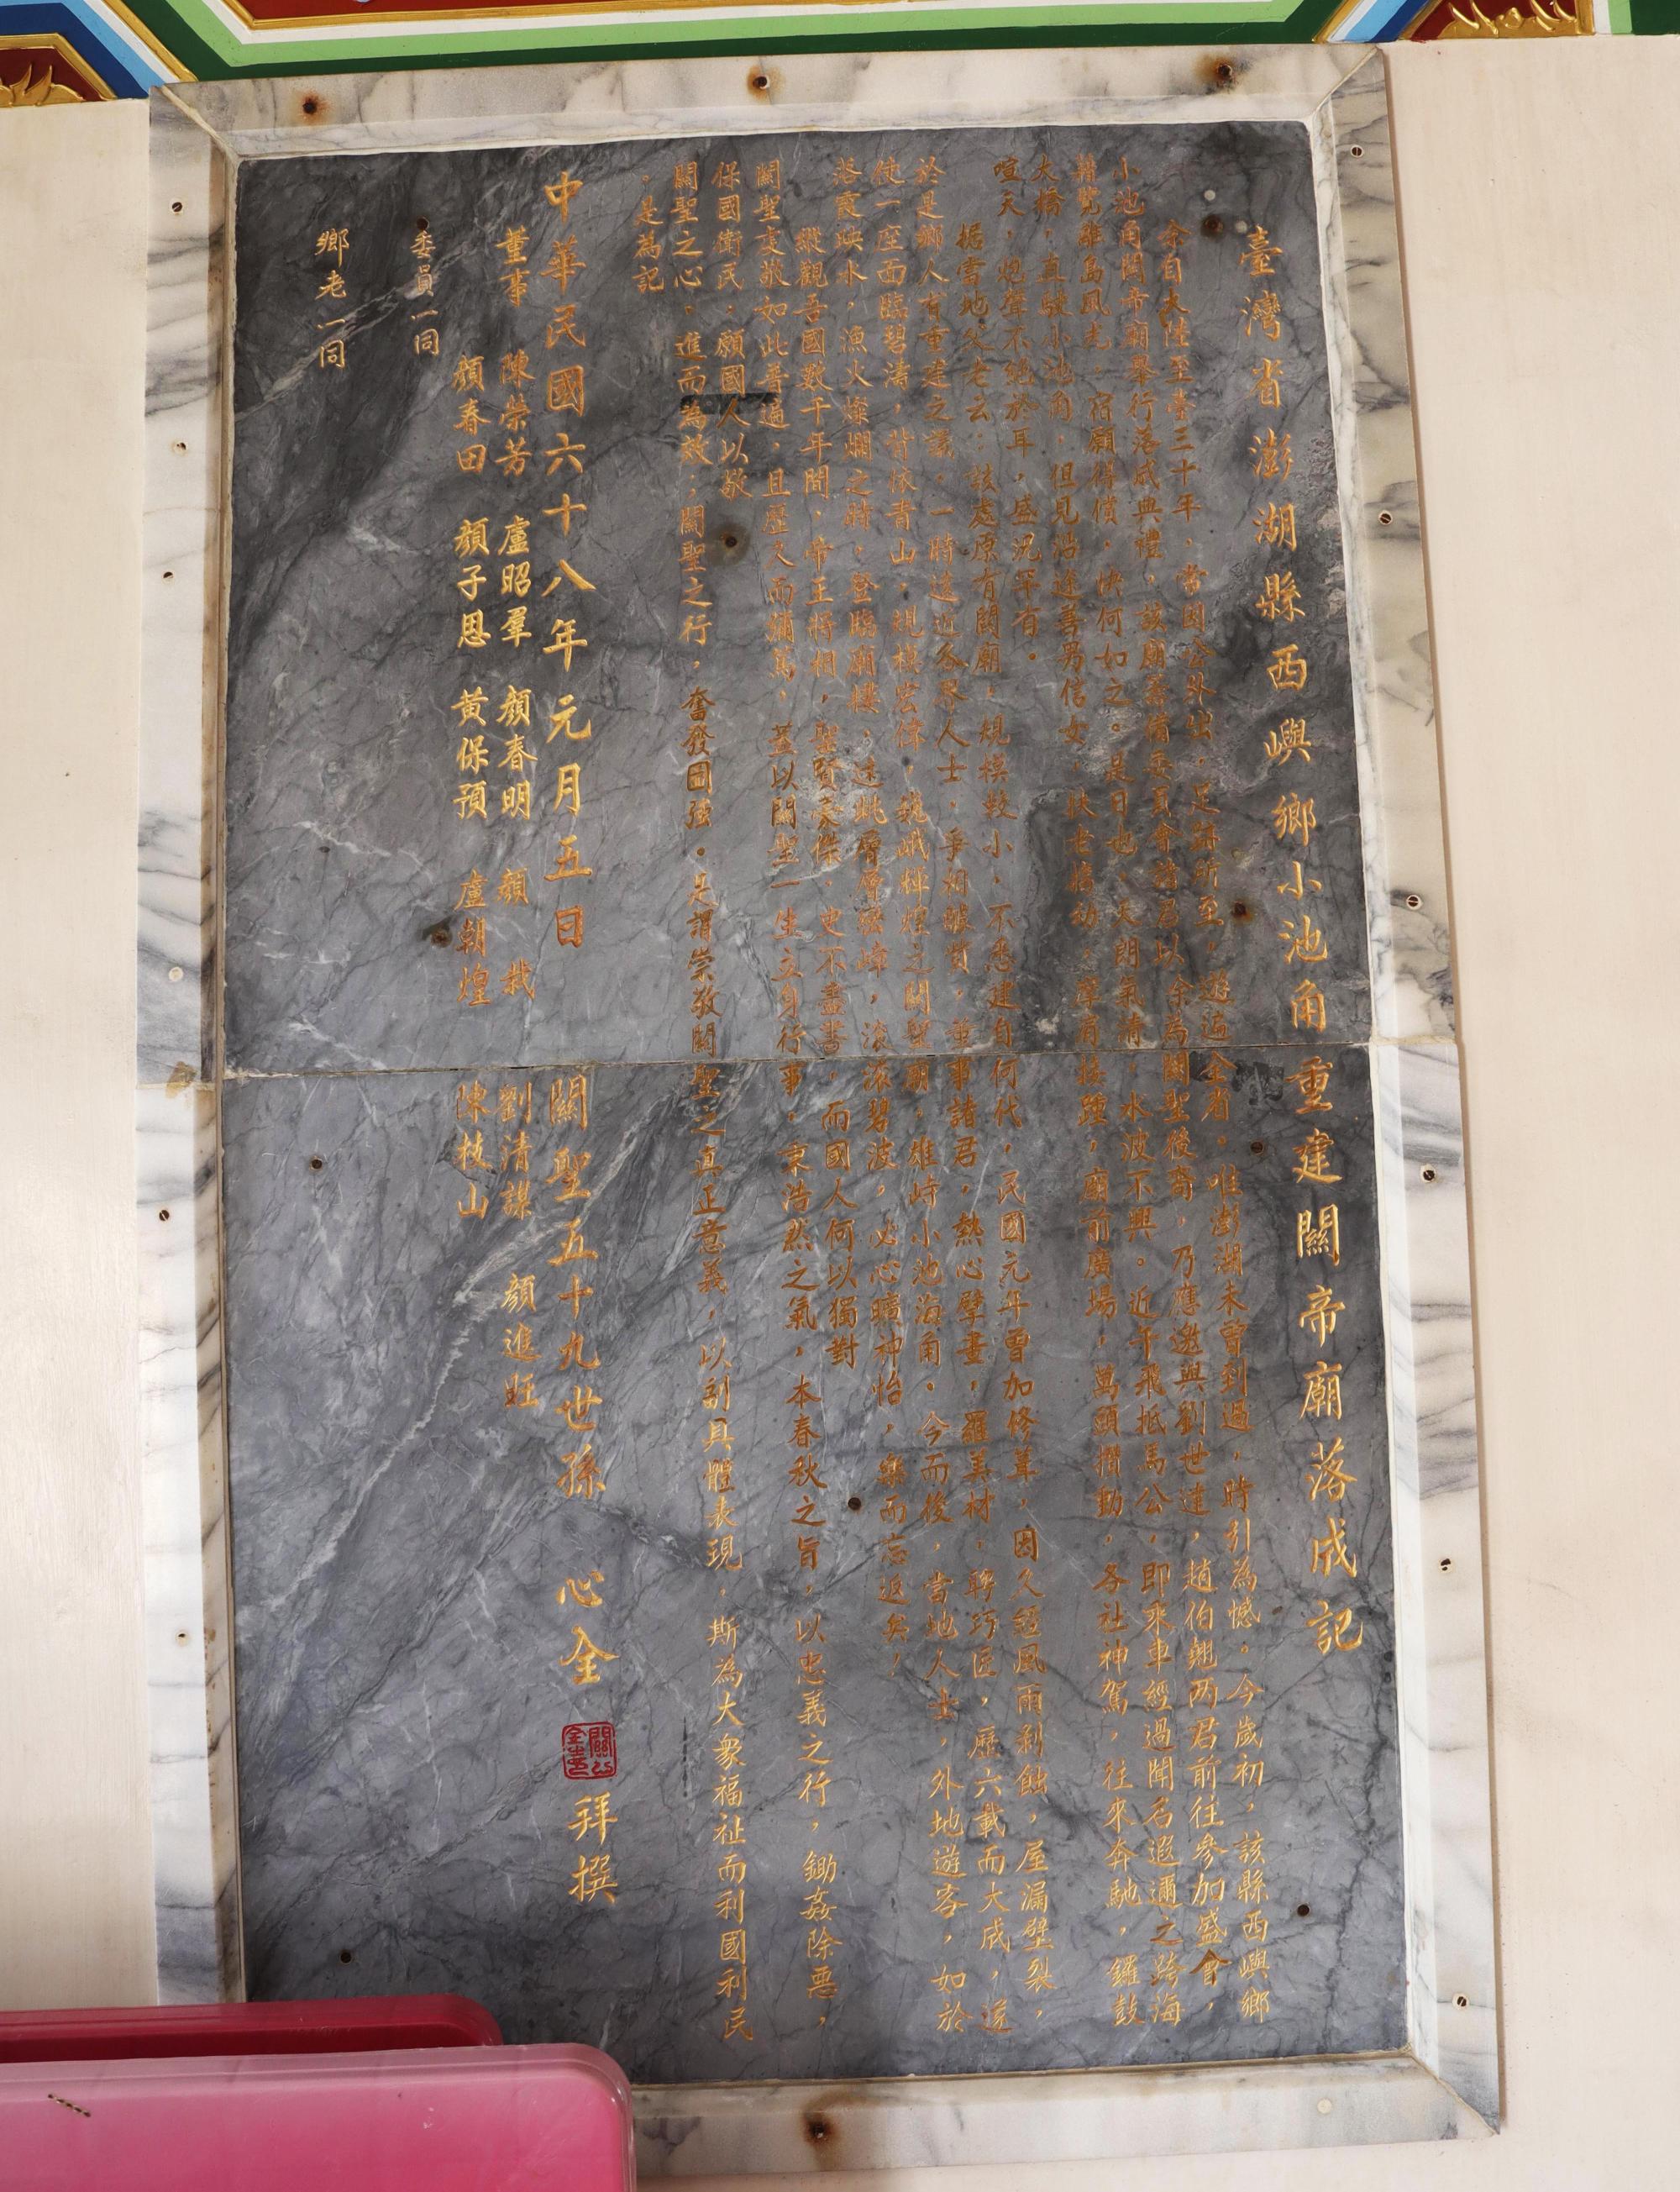 臺灣省澎湖縣西嶼鄉小池角重建關帝廟落成記
余自大陸至臺三十年，常因公外出，足跡所至，遊遍全省。唯澎湖未曾到過，時引為憾。今歲初，該縣西嶼鄉
小池角關帝廟舉行落成典禮，該廟籌備委員會諸君以余為關聖後裔，乃應邀與劉世達，趙伯翹两君前往參加盛會，
藉覽離島風光，宿願得償，快何如之。是日也，天朗氣清，水波不興。近午飛抵馬公，即乘車經過聞名遐邇之跨海
大橋，直駛小池角，但見沿途善男信女，扶老携幼，摩肩接踵，廟前廣場，萬頭攢動，各社神駕，往來奔馳，鑼鼓
喧天，炮聲不絕於耳，盛況罕有。
据當地父老云：該處原有關廟，規模較小，不悉建自何代，民國元年曾加修葺，因久經風雨剝蝕，屋漏壁裂，
於是鄉人有重建之議，一時遠近各界人士，爭相醵資，董事諸君，熱心擘畫，羅美材，聘巧匠，歷六載而大成，遂
使一座面臨碧濤，背依青山，規模宏偉，巍峨輝煌之關聖廟，雄峙小池海角。今而後，當地人士，外地遊客，如於
落霞映水，漁火燦爛之時，登臨廟樓，遠眺層層疊嶂，滾滾碧波，必心曠神怡，樂而忘返矣！
縱觀吾國數千年間，帝王將相，聖賢豪傑，史不盡書，而國人何以獨對
關聖虔敬如此普遍，且歷久而彌篤，蓋以關聖一生立身行事，秉浩然之氣，本春秋之旨，以忠義之行，鋤姦除惡，
保國衛民，願國人以敬
關聖之心，進而為效；關聖之行，奮發圖強。是謂崇敬關聖之真正意義，以副具體表現，斯為大衆福祉而利國利民
。是為記
中華民國六十八年元月五日　關聖五十九世孫　心全　拜撰
董事　陳榮芳　盧昭羣　顏春明　顏　栽　劉清謀　顏進旺
顏春田　顏子恩　黃保預　盧朝煌　陳枝山
委員一同
鄉老一同